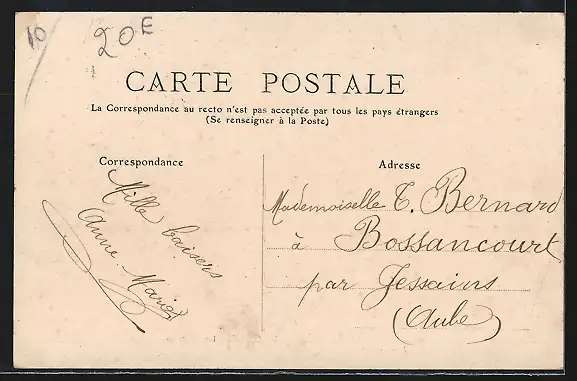 10
20E
CARTE POSTALE
La Correspondance au recto n'est pas acceptée par tous les pays étrangers
(Se renseigner à la Poste)
Correspondance
Mille baisers
Anne Marie
Adresse
Mademoiselle T. Bernard
à Bossancourt
par Jessains
(Aube)